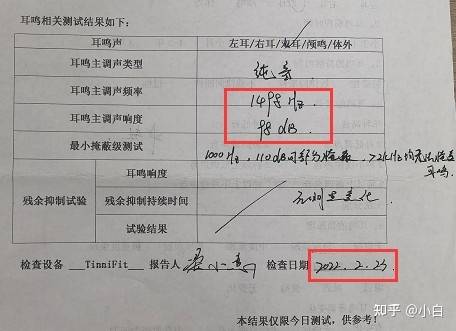 耳鸣相关测试结果如下:
耳鸣声 左耳/右耳/双耳/颅鸣/体外
耳鸣主调声类型 纯音
耳鸣主调声频率 1498 Hz.
耳鸣主调声响度 98 dB
最小掩蔽级测试 1000 Hz, 110 dB可部分掩蔽, >2kHz均无法掩蔽
耳鸣.
残余抑制试验
耳鸣响度
残余抑制持续时间
试验结果
检查设备 __TinniFit__ 报告人 检查日期 2022.2.23.
知乎 @小白
本结果仅限今日测试,供参考!